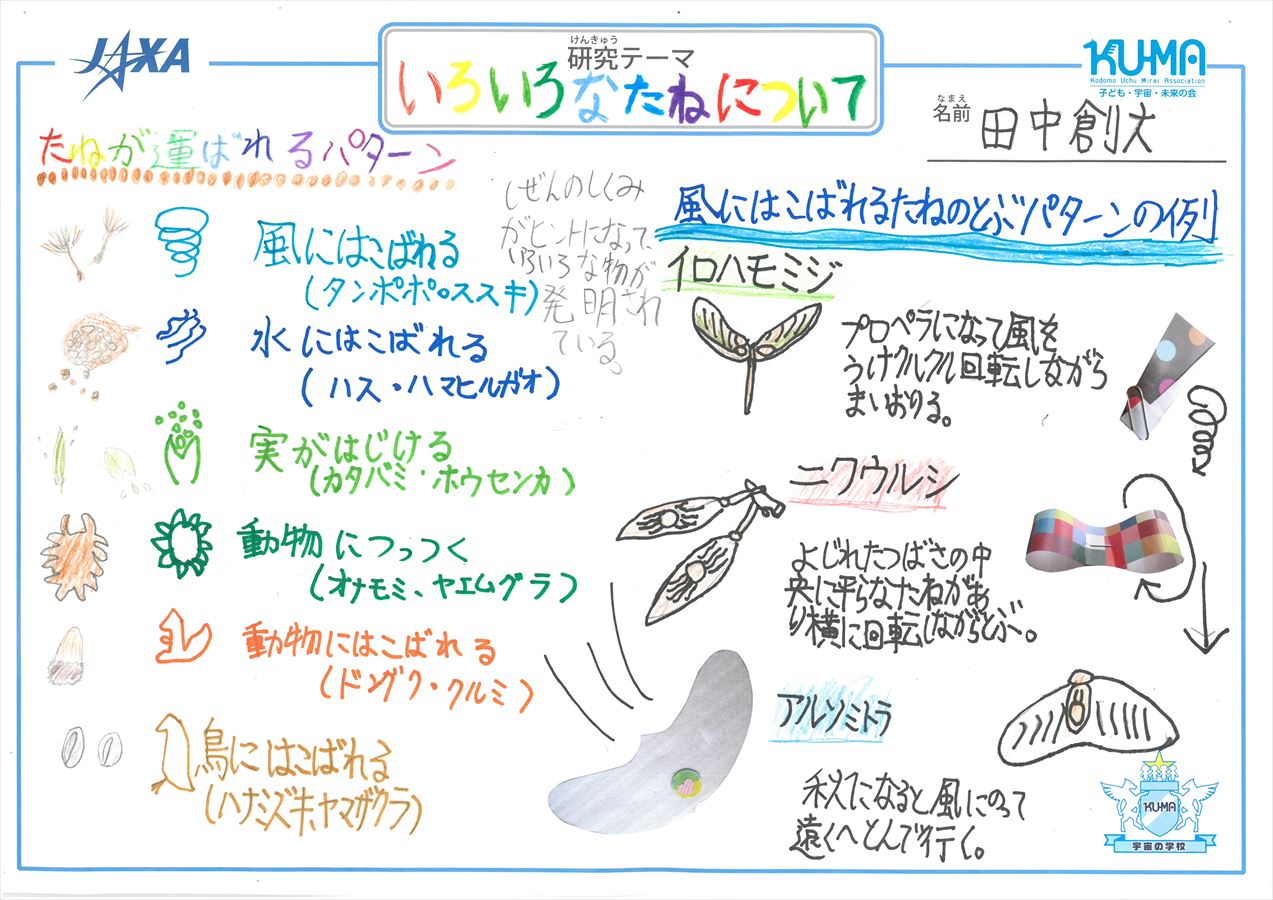 JAXA
けんきゅう
研究テーマ
いろいろなたねについて
KU-MA
Kodomo Uchu Mirai Association
子ども・宇宙・未来の会
なまえ
名前
田中創大
たねが運ばれるパターン
風にはこばれる
(タンポポ・ススキ)
水にはこばれる
(ハス・ハマヒルガオ)
実がはじける
(カタバミ・ホウセンカ)
動物につっつく
(オナモミ、ヤエムグラ)
動物にはこばれる
(ドングク・クルミ)
鳥にはこばれる
(ハナミズキ、ヤマザクラ)
しぜんのしくみ
がヒントになって、
いろいろな物が
発明され
ている。
風にはこばれるたねのとぶパターンの例
イロハモミジ
プロペラになって風を
うけクルクル回転しながら
まいおりる。
ニワウルシ
よじれたつばさの中
央に平らなたねがあ
り横に回転しながらとぶ。
アルソミトラ
秋になると風にのって
遠くへとんで行く。
KU-MA
宇宙の学校